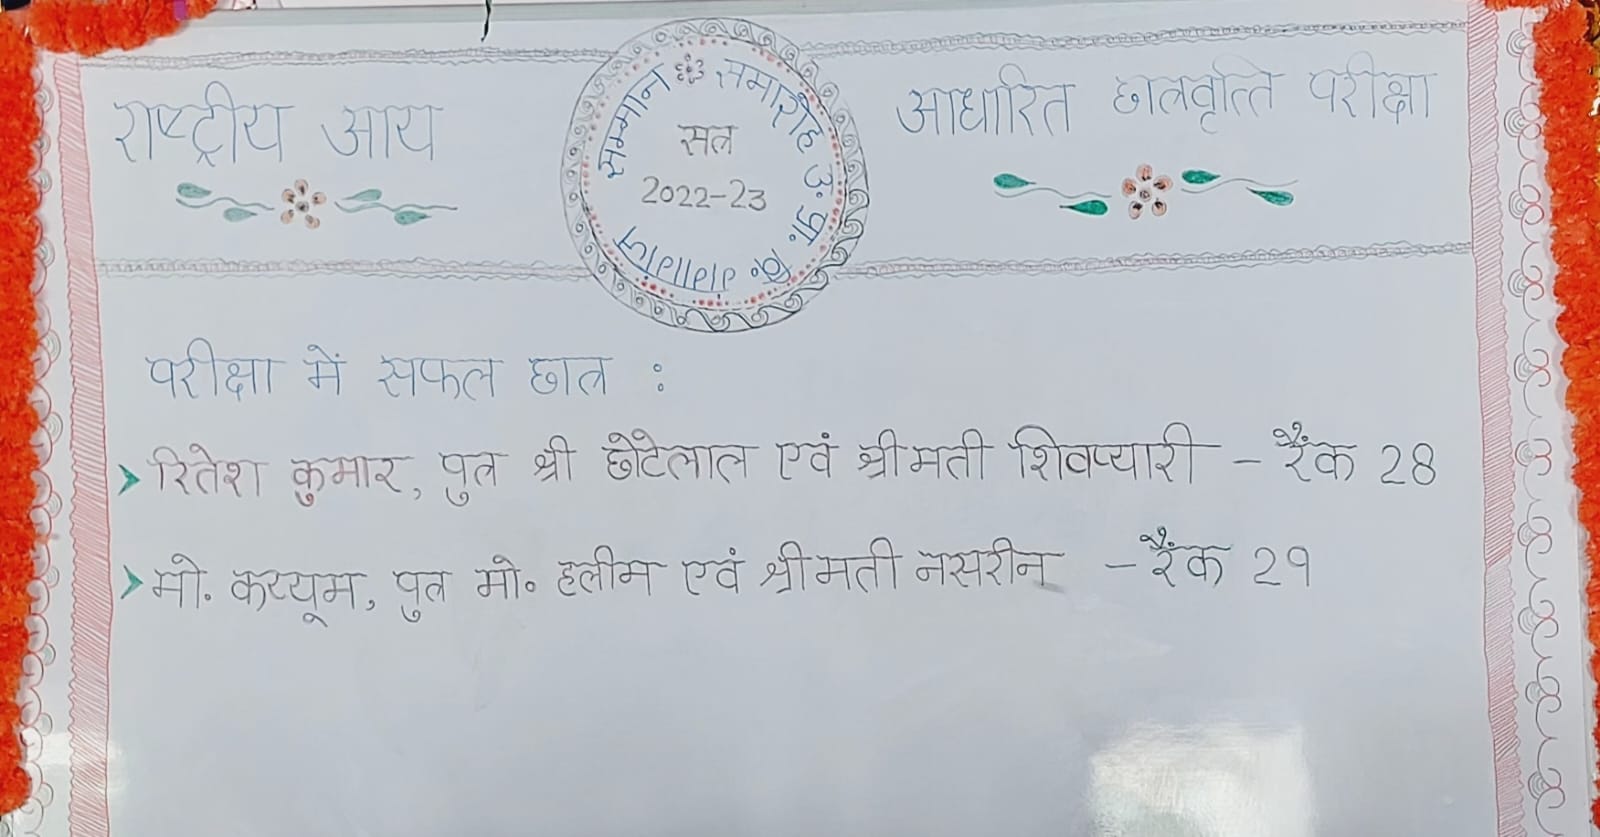 राष्ट्रीय आय
सम्मान समारोह उ. प्रा. वि.
सत्र
2022-23
आधारित छात्रवृत्ति परीक्षा
परीक्षा में सफल छात्र :
रितेश कुमार, पुत्र श्री छोटेलाल एवं श्रीमती शिवप्यारी - रैंक 28
मो. कय्यूम, पुत्र मो. हलीम एवं श्रीमती नसरीन - रैंक 29